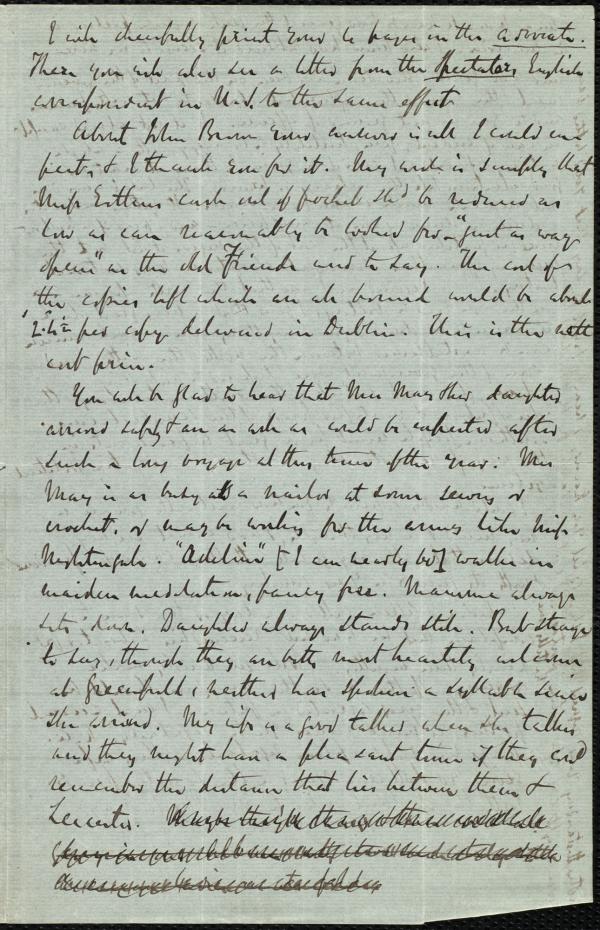 I will cheerfully print your 4 pages in the Advocate.
There you will also see a letter from the Spectator's English
correspondent in U.S. to the same effect.
About John Brown your answer is all I could ex-
pect, & I thank you for it. My wish is simply that
Miss Estlin's cash out of pocket shd be reduced as
low as can reasonably be looked for - "just as way
opens" as the old Friends used to say. The cost of
the copies left which are all bound would be about
per copy delivered in Dublin. This is the nett
cost price.
You will be glad to hear that Mrs May & her daughter
arrived safely & are as well as could be expected after
such a long voyage at this time of the year. Mrs
May is as busy as a nailor at some sewing or
crochet, or may be working for the army like Miss
Nightingale. "Adeline" [I am nearly 60] walks in
maiden meditation, fancy free. Mamma always
sits down. Daughter always stands still. But strange
to say, though they are both most heartily welcome
at Greenfield, neither has spoken a syllable since
she arrived. My wife is a good talker when she talks
and they might have a pleasant time if they cd
remember the distance that lies between them &
Leicester.